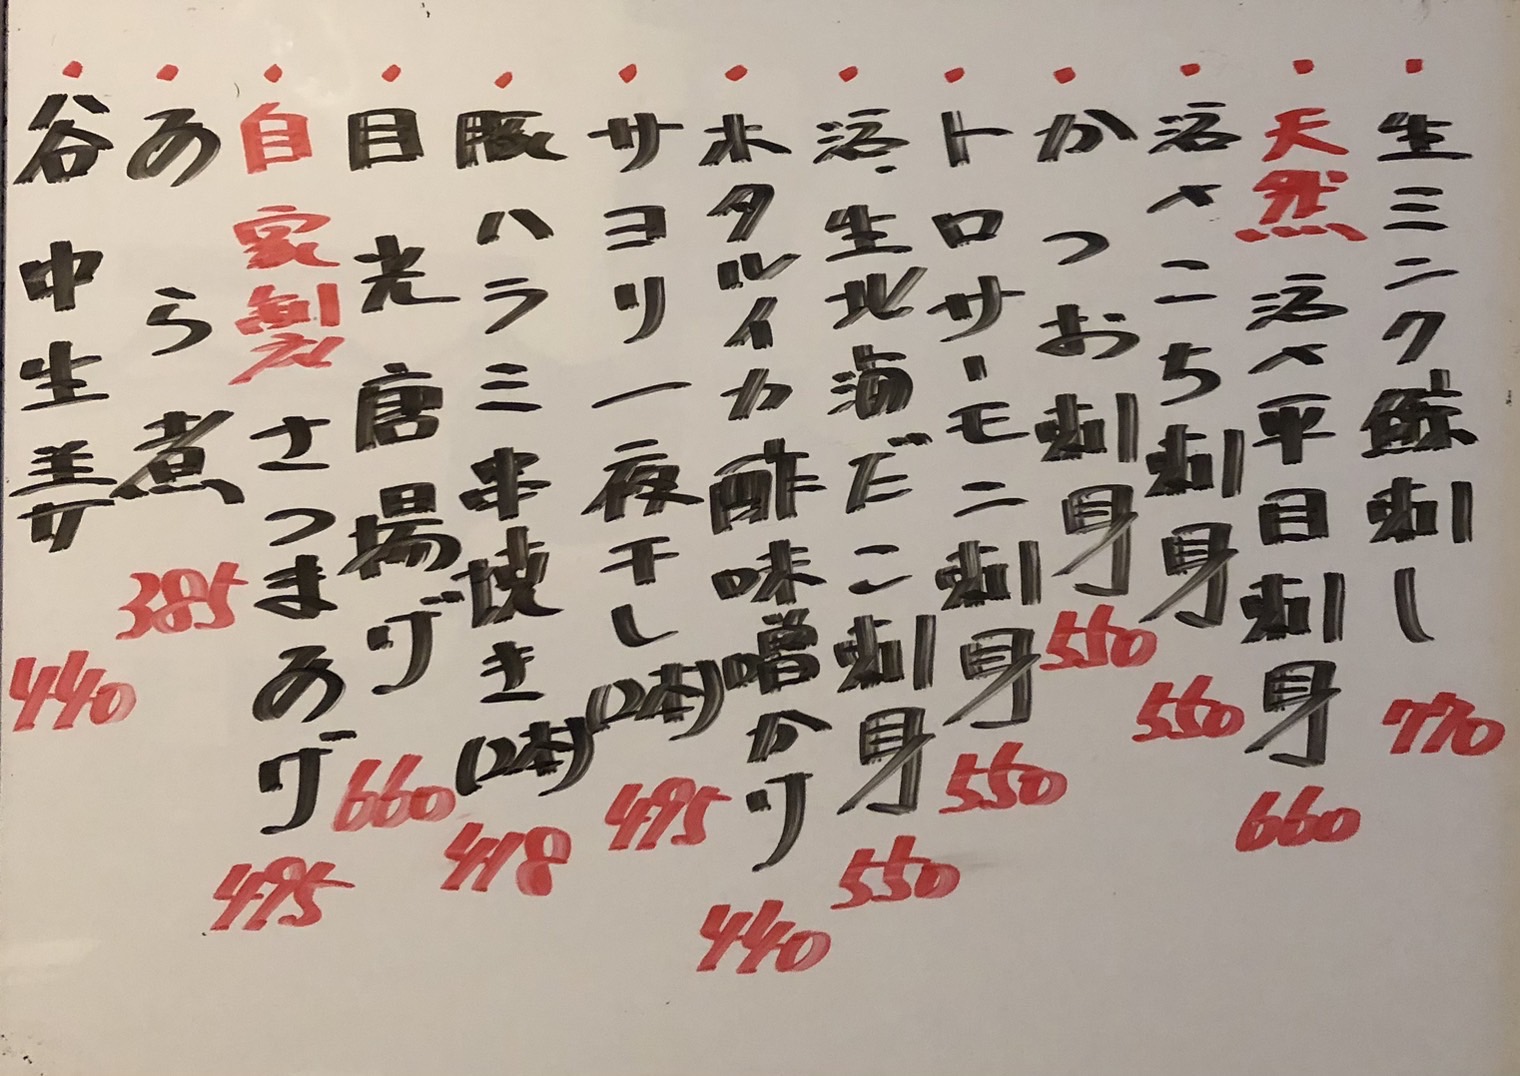 ・生ミンク鯨刺し 770
・天然活〆平目刺身 660
・活〆こち刺身 550
・かつお刺身 550
・トロサーモン刺身 550
・活・生北海だこ刺身 550
・ホタルイカ酢味噌かけ 440
・サヨリ一夜干し(2本) 495
・豚ハラミ串焼き(2本) 418
・目光唐揚げ 660
・自家製さつまあげ 495
・あら煮 385
・谷中生姜 440